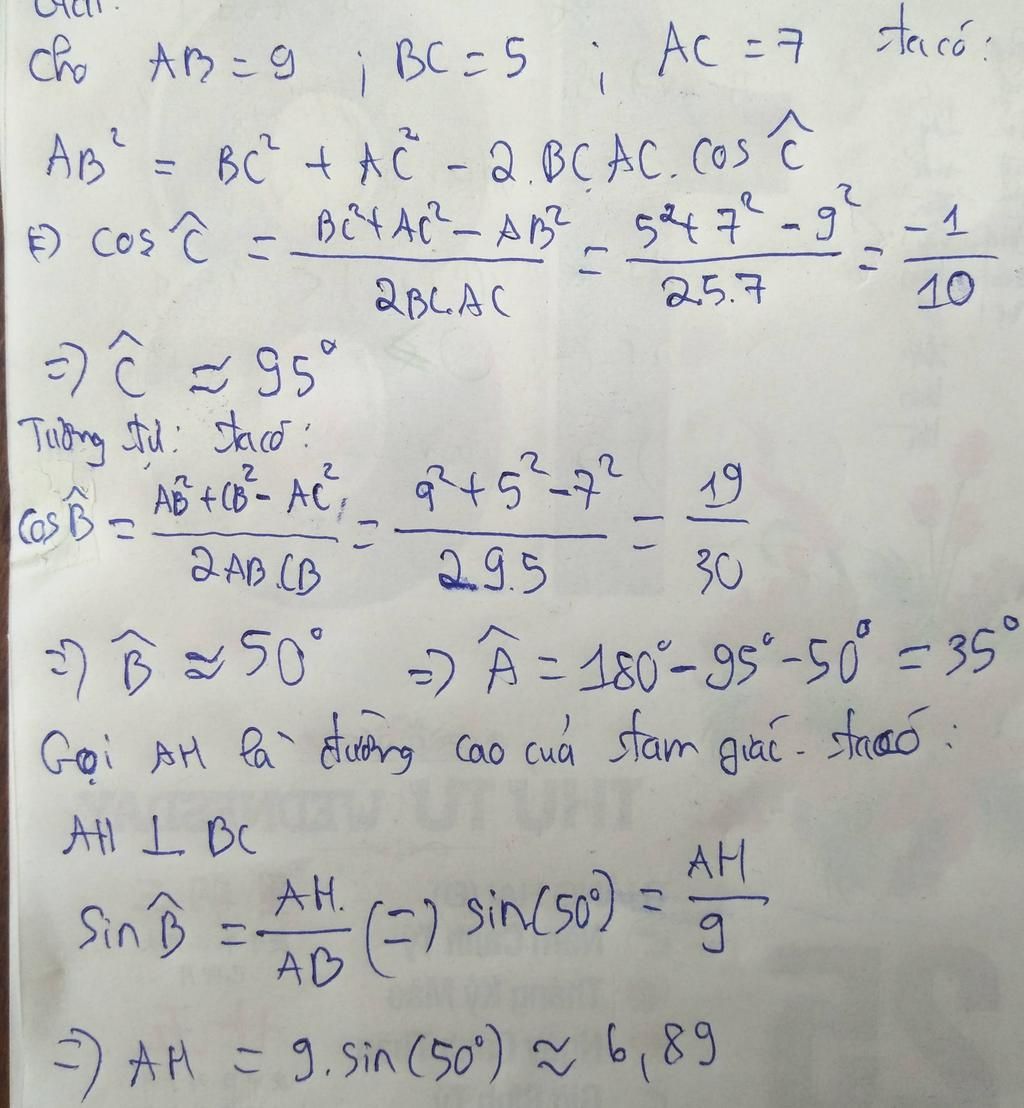 Cho AB = 9 ; BC = 5 ; AC = 7 ta có:
AB² = BC² + AC² - 2.BC.AC.cos Ĉ
(=) cos Ĉ = (BC²+AC²-AB²)/(2BC.AC) = (5²+7²-9²)/(2.5.7) = -1/10
=) Ĉ ≈ 95°
Tương tự: ta có:
cos B̂ = (AB²+CB²-AC²)/(2AB.CB) = (9²+5²-7²)/(2.9.5) = 19/30
=) B̂ ≈ 50° =) Â = 180°-95°-50° = 35°
Gọi AH là đường cao của tam giác. ta có:
AH ⊥ BC
Sin B̂ = AH/AB (=) sin(50°) = AH/9
=) AH = 9.sin(50°) ≈ 6,89
THỨ TƯ WEDNESDAY
Tháng Kỷ Mão